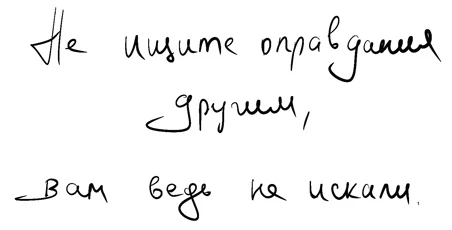 Не ищите оправдания
другим,
вам ведь не искали.